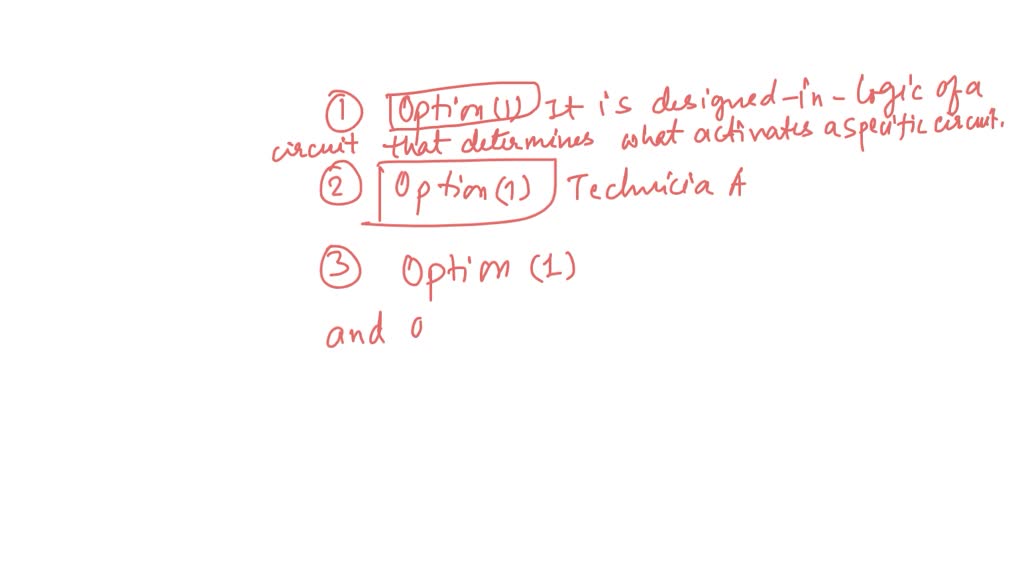 ① Option (1) It is designed-in-logic of a
circuit that determines what activates a specific circuit.
② Option (1) Technicia A
③ Option (1)
and O